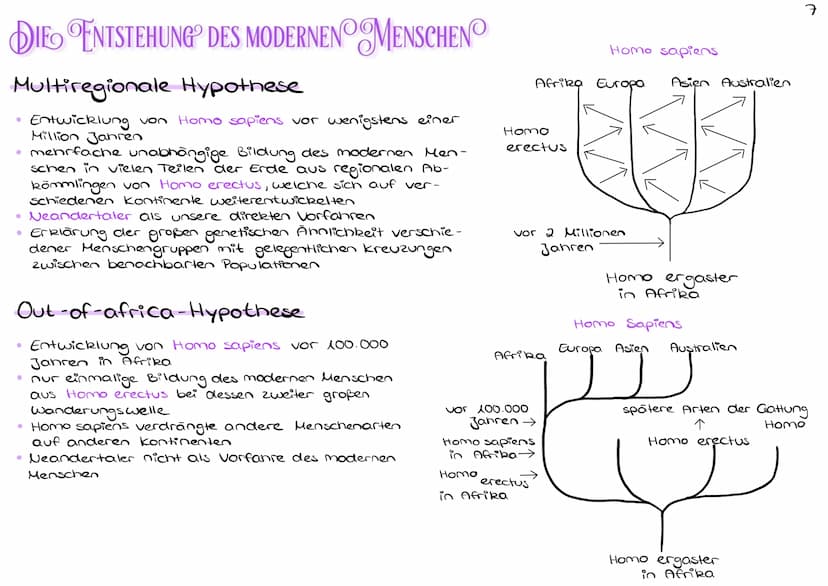 7
Die Entstehung des modernen Menschen
Multiregionale Hypothese
• Entwicklung von Homo sapiens vor wenigstens einer
Million Jahren
• mehrfache unabhängige Bildung des modernen Men-
schen in vielen Teilen der Erde aus regionalen Ab-
kömmlingen von Homo erectus, welche sich auf ver-
schiedenen Kontinente weiterentwickelten
• Neandertaler als unsere direkten Vorfahren
• Erklärung der großen genetischen Ähnlichkeit verschie-
dener Menschengruppen mit gelegentlichen Kreuzungen
zwischen benachbarten Populationen
Homo sapiens
Afrika Europa Asien Australien
Homo
erectus
vor 2 Millionen
Jahren
Homo ergaster
in Afrika
Out-of-africa-Hypothese
• Entwicklung von Homo sapiens vor 100.000
Jahren in Afrika
• nur einmalige Bildung des modernen Menschen
aus Homo erectus bei dessen zweiter großen
Wanderungswelle
• Homo sapiens verdrängte andere Menschenarten
auf anderen Kontinenten
• Neandertaler nicht als Vorfahre des modernen
Menschen
Homo Sapiens
Afrika Europa Asien Australien
vor 100.000
Jahren →
Homo sapiens
in Afrika →
Homo erectus →
in Afrika
spätere Arten der Gattung
Homo
↑
Homo erectus
Homo ergaster
in Afrika